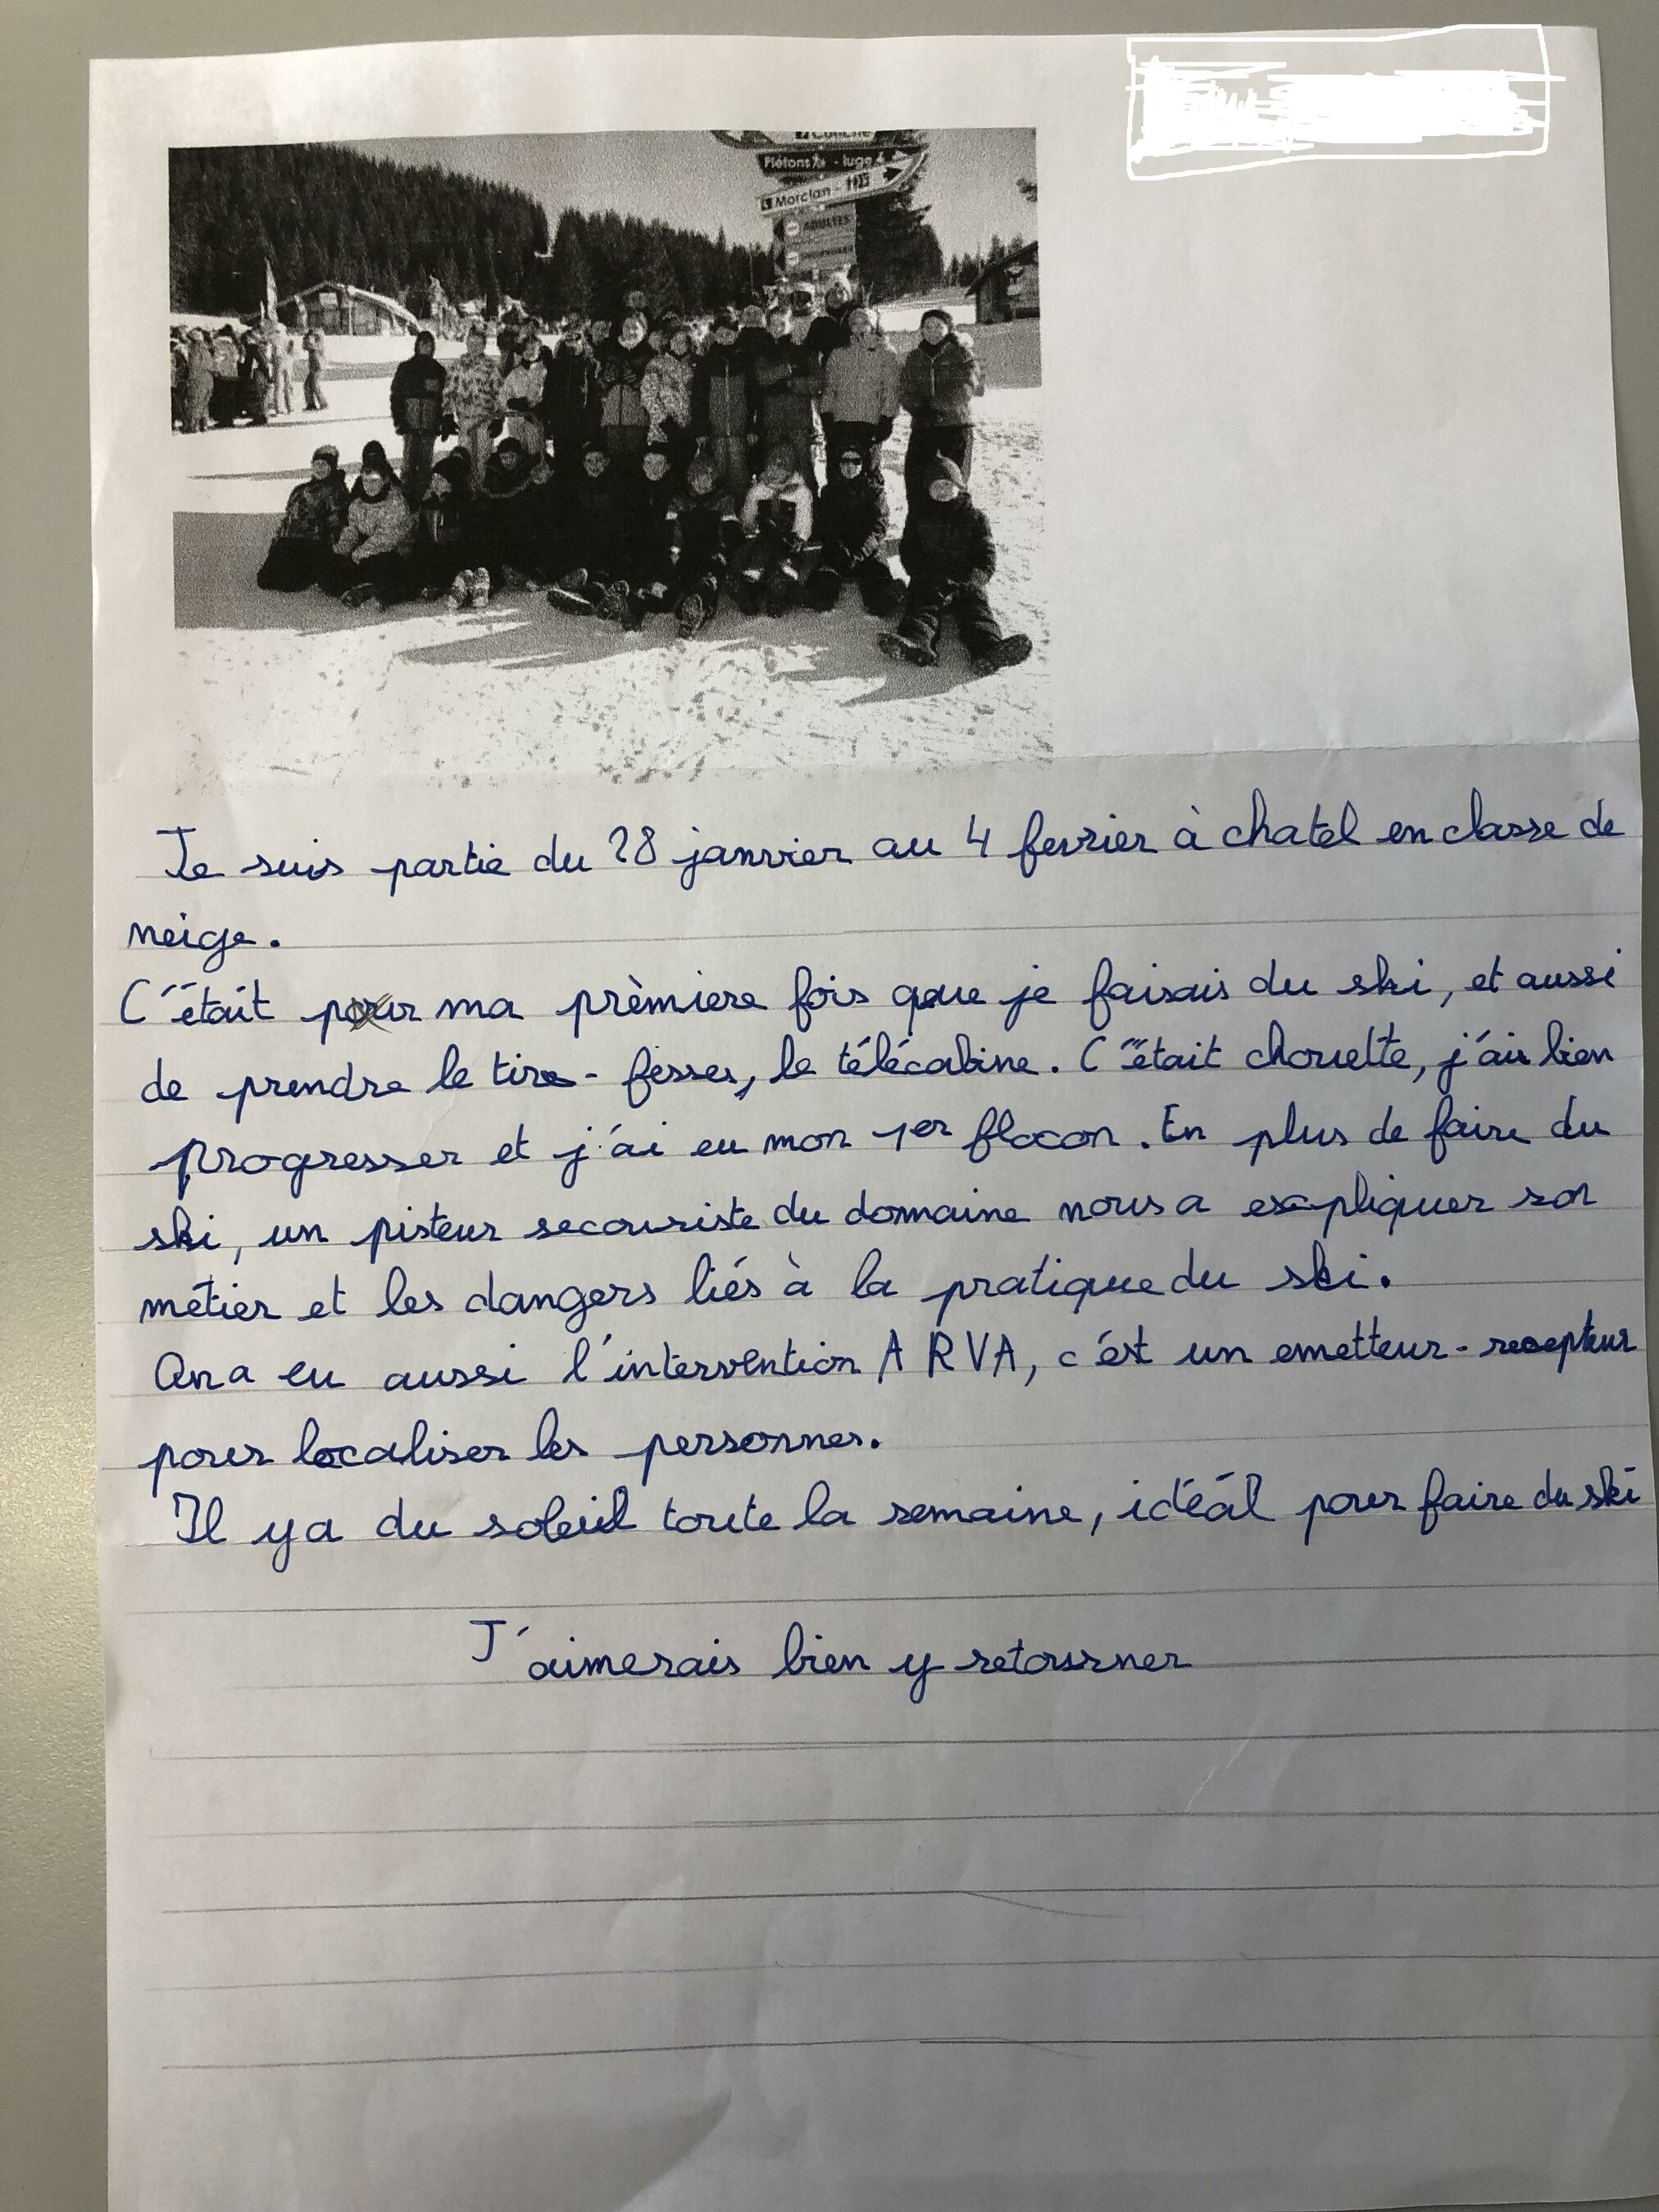 Piétons - luge
Morclan
ADULTES
Je suis partie du 28 janvier au 4 fevrier à chatel en classe de
neige.
C'était pour ma prèmiere fois que je faisais du ski, et aussi
de prendre le tire-fesses, le télécabine. C'était chouette, j'ai bien
progresser et j'ai eu mon 1er flocon. En plus de faire du
ski, un pisteur secouriste du domaine nous a expliquer son
métier et les dangers liés à la pratique du ski.
On a eu aussi l'intervention ARVA, c'est un emetteur-recepteur
pour localiser les personnes.
Il y a du soleil toute la semaine, idéal pour faire du ski
J'aimerais bien y retourner